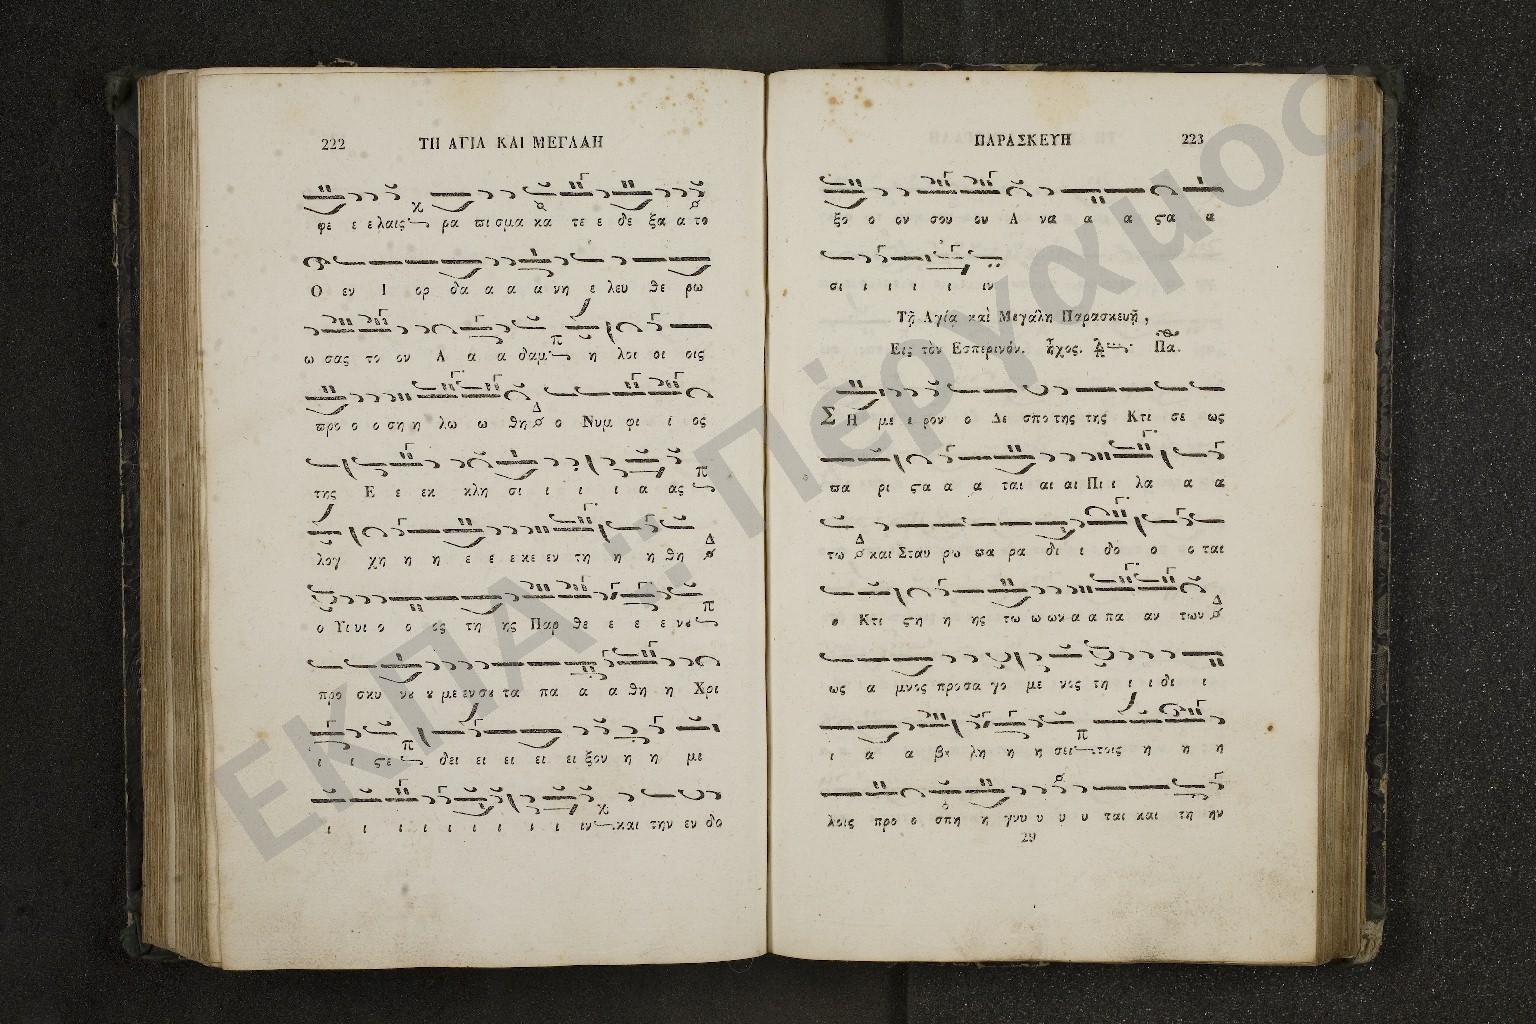 222 ΤΗ ΑΓΙΑ ΚΑΙ ΜΕΓΑΛΗ
φε ε ε λαις ρα πι σμα κα τε ε δε ξα α το
Ο εν Ι ορ δα α α α νη ε λευ θε ρω
ω σας το ον Α α α δαμ η λοι οι οις
προ ο ο ση η λω ω θη ο Νυμ φι ι ος
της Ε ε εκ κλη σι ι ι ι α ας
λογ χη η η ε ε ε κε εν τη η η θη
ο Υι υι ο ο ος τη ης Παρ θε ε ε ε νȣ
προ σκυ νȣ ȣ με εν σȣ τα πα α α θη η Χρι
ι ι ϛε δει ει ει ει ει ξον η η με
ι ι ι ι ι ι ι ι ι ιν και την εν δο
ΠΑΡΑΣΚΕΥΗ 223
ξο ο ον σου ου Α να α α ϛα α
σι ι ι ι ι ιν
Τῇ Αγίᾳ καὶ Μεγάλη Παρασκευῇ,
Εις τὸν Εσπερινόν. ἦχος. Πα.
ΣΗ με ε ρον ο Δε σπο της της Κτι σε ως
πα ρι ϛα α α α ται αι αι Πι ι λα α α
τω και Σταυ ρω πα ρα δι ι δο ο ο ται
ο Κτι ϛη η ης τω ω ων α α πα αν των
ως α μνος προσα γο με νος τη ι ι δι ι
ι α α βȣ λη η η σει τοις η η η
λοις προ ο σπη η γνυ υ υ υ ται και τη ην
29
ΕΚΠΑ :: Πέργαμος